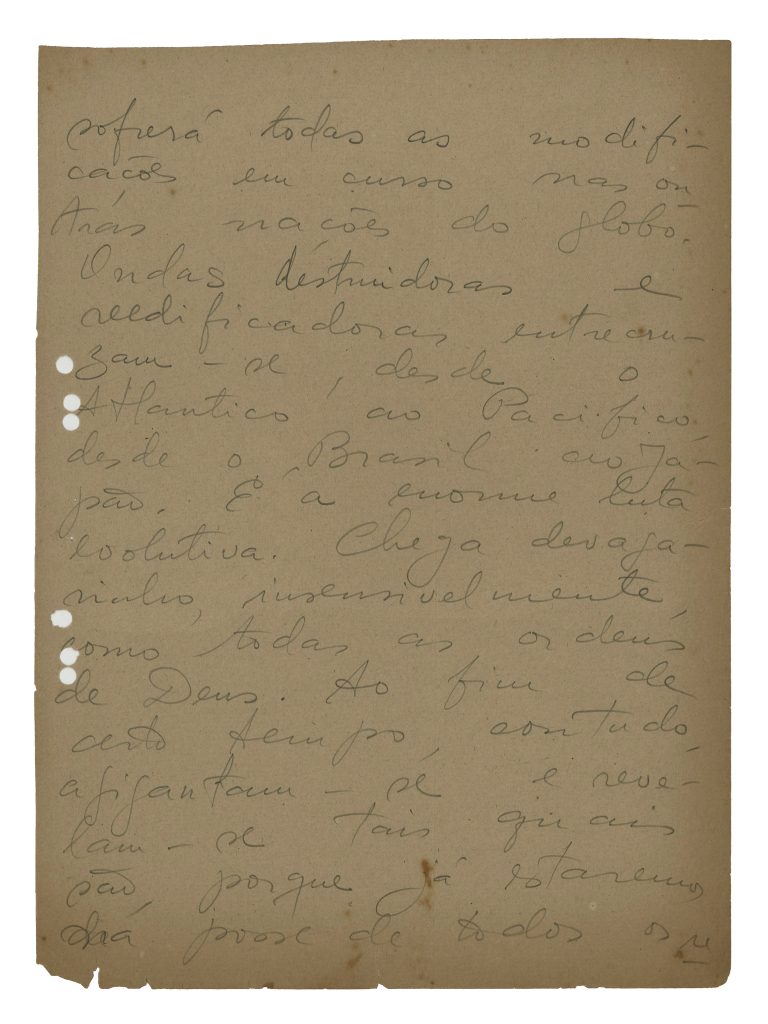 sofrerá todas as modifi-
cações em curso nas ou
trás nações do globo.
Ondas destruidoras e
reedificadoras entrecru-
zam-se, desde o
Atlantico ao Pacifico,
desde o Brasil ao Ja-
pão. É a enorme luta
evolutiva. Chega devaga-
rinho, insensivelmente,
como todas as ordens
de Deus. Ao fim de
certo tempo, contudo
agigantam-se e reve-
lam-se tais quais
são, porque já estaremos
na posse de todos os re